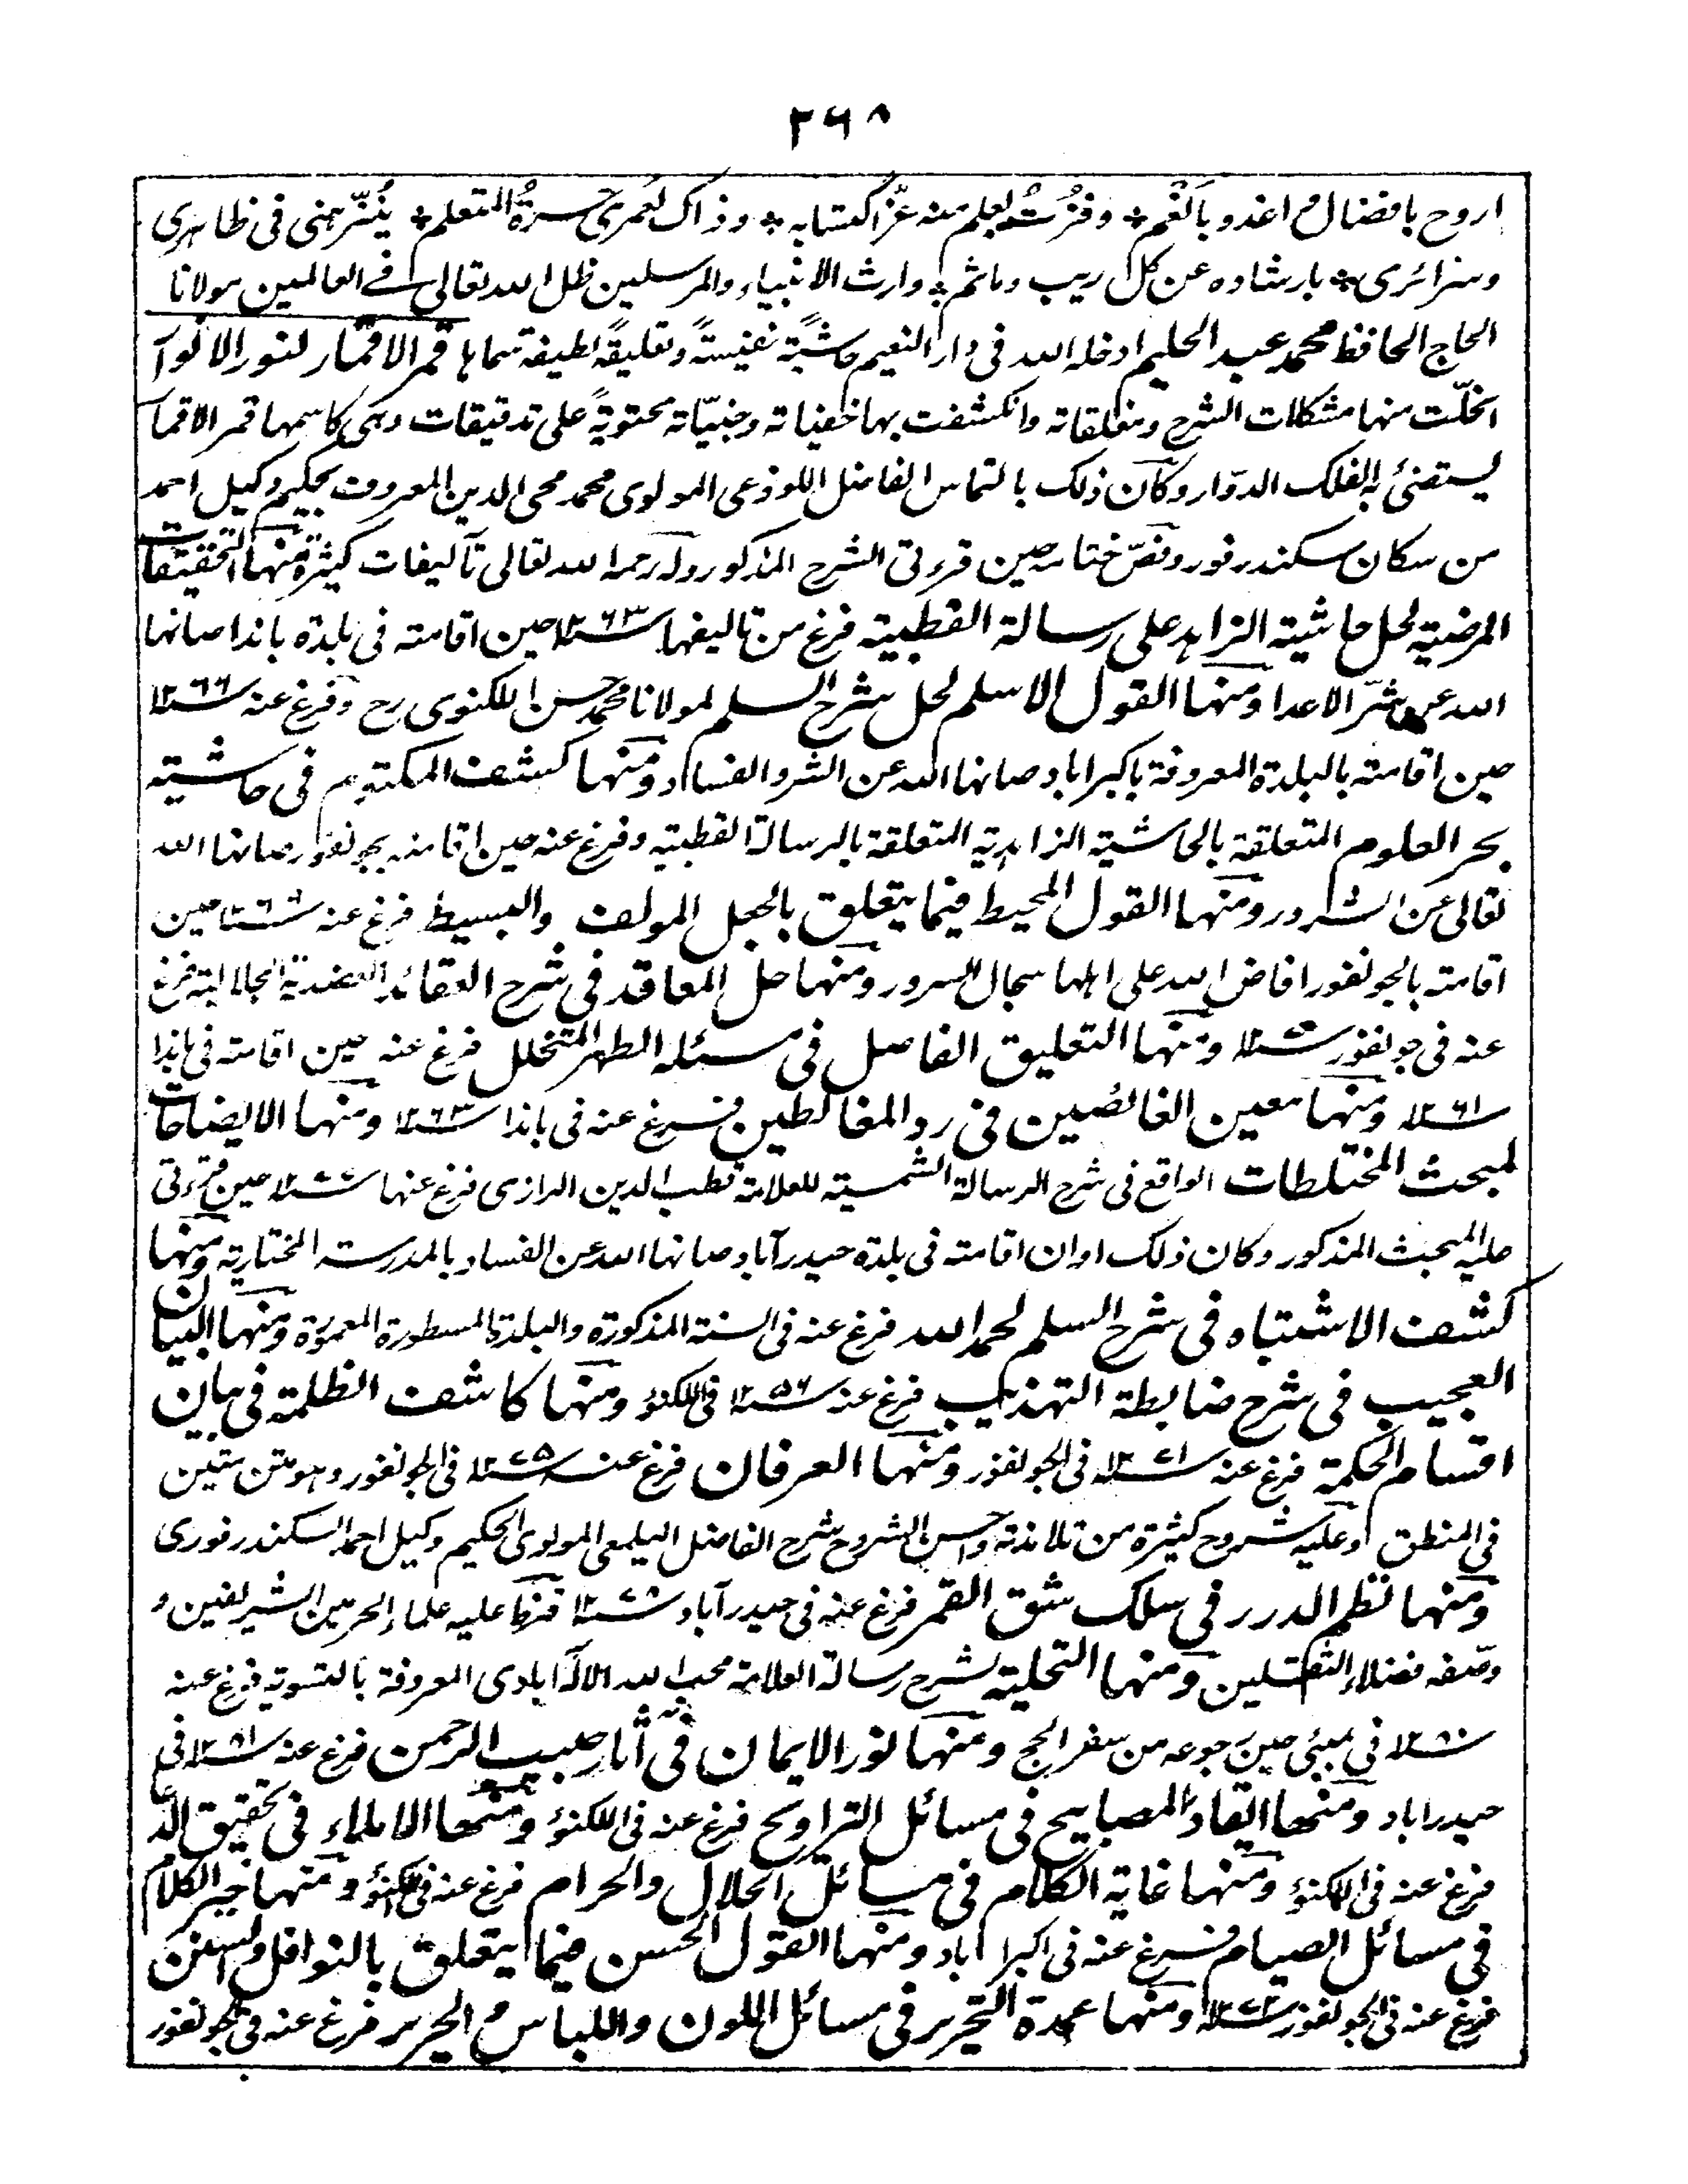 ٢٦٨
اروح بافضال م اغدو بأنعُم * وفُزْتُ بعلم منه عزّ اكتسابه * وذاك لعمرى حسرةُ المتعلم * يُنزّهنى فى ظاهرى
وسرائرى * بارشاده عن كل ريب وماثم * وارث الانبياء والمرسلين ظل الله تعالى فے العالمين مولانا
الحاج الحافظ محمد عبد الحليم ادخله الله فى دار النعيم حاشيةً نفيسةً وتعليقةً لطيفة سماها قمر الاقمار لنور الانوار
انحلّت منها مشكلات الشرح ومغلقاته وانكشفت بها خفياته وخبيّاته محتويةً على تدقيقات وهى كاسمها قمر الاقما
يستضئ به الفلك الدوّار وكان ذلك بالتماس الفاضل اللوذعى المولوى محمد محى الدين المعروف بحكيم وكيل احمد
من سكان سكندرفور وفضّ ختامه حين قرءتى الشرح المذكور وله رحمه الله تعالى تآليفات كثيرة منها التحقيقات
المرضية لحل حاشية الزاهد على رسالة القطبية فرغ من تاليفها سنة ١٢٦٣ حين اقامته فى بلدة باندا صانها
الله عن شرّ الاعدا ومنها القول الاسلم لحل شرح السلم لمولانا محمد حسن اللكنوى رح وفرغ عنه سنة ١٢٦٦
حين اقامته بالبلدة المعروفة باكبراباد صانها الله عن الشر والفساد ومنها كشف المكتوم فى حاشية
بحر العلوم المتعلقة بالحاشية الزاهدية المتعلقة بالرسالة القطبية وفرغ عنه حين اقامته بجونفور صانها الله
تعالى عن الشرور ومنها القول المحيط فيما يتعلق بالجعل المولف والبسيط فرغ عنه سنة حين
اقامته بالجونفور افاض الله على اهلها سجال السرور ومنها حل المعاقد فى شرح العقائد العضدية الجلالية فرغ
عنه فى جونفور سنة ١٢٧٠ ومنها التعليق الفاصل فى مسئله الطهر المتخلل فرغ عنه حين اقامته فى باندا
سنة ١٢٦١ ومنها معين الغائصين فى رد المغالطين فرغ عنه فى باندا سنة ١٢٦٣ ومنها الايضاحات
لمبحث المختلطات الواقع فى شرح الرسالة الشمسية للعلامة قطب الدين الرازى فرغ عنها سنة حين قرءتى
عليه المبحث المذكور وكان ذلك اوان اقامته فى بلدة حيدرآباد صانها الله عن الفساد بالمدرسة المختارية ومنها
كشف الاشتباه فى شرح السلم لحمد الله فرغ عنه فى السنة المذكورة والبلدة المسطورة المعمورة ومنها البيان
العجيب فى شرح ضابطة التهذيب فرغ عنه سنة ١٢٥٦ فى اللكنؤ ومنها كاشف الظلمة فى بيان
اقسام الحكمة فرغ عنه سنة ١٢٧١ فى الجونفور ومنها العرفان فرغ عنه سنة ١٢٧٥ فى الجونفور وهو متن متين
فى المنطق وعليه شروح كثيرة من تلامذته واحسن الشروح شرح الفاضل اليلمعى المولوى الحكيم وكيل احمد السكندرفورى
ومنها نظم الدرر فى سلك شق القمر فرغ عنه فى حيدرآباد سنة قرظ عليه علماء الحرمين الشريفين و
وصفه فضلاء الثقلين ومنها التحلية شرح رسالة العلامة محب الله الاله ابادى المعروفة بالتسوية فرغ عنه
سنة ١٢٨٠ فى بمبئى حين رجوعه من سفر الحج ومنها نور الايمان فى آثار حبيب الرحمن فرغ عنه سنة ١٢٨١ فى
حيدراباد ومنها ايقاد المصابيح فى مسائل التراويح فرغ عنه فى اللكنؤ ومنها الاملاء فى تحقيق الدعا
فرغ عنه فى اللكنؤ ومنها غاية الكلام فى مسائل الحلال والحرام فرغ عنه فى اللكنؤ ومنها خير الكلام
فى مسائل الصيام فرغ عنه فى اكبراباد ومنها القول الحسن فيما يتعلق بالنوافل والسنن
فرغ عنه فى الجونفور سنة ومنها عمدة التحرير فى مسائل اللون واللباس والحرير فرغ عنه فى الجونفور